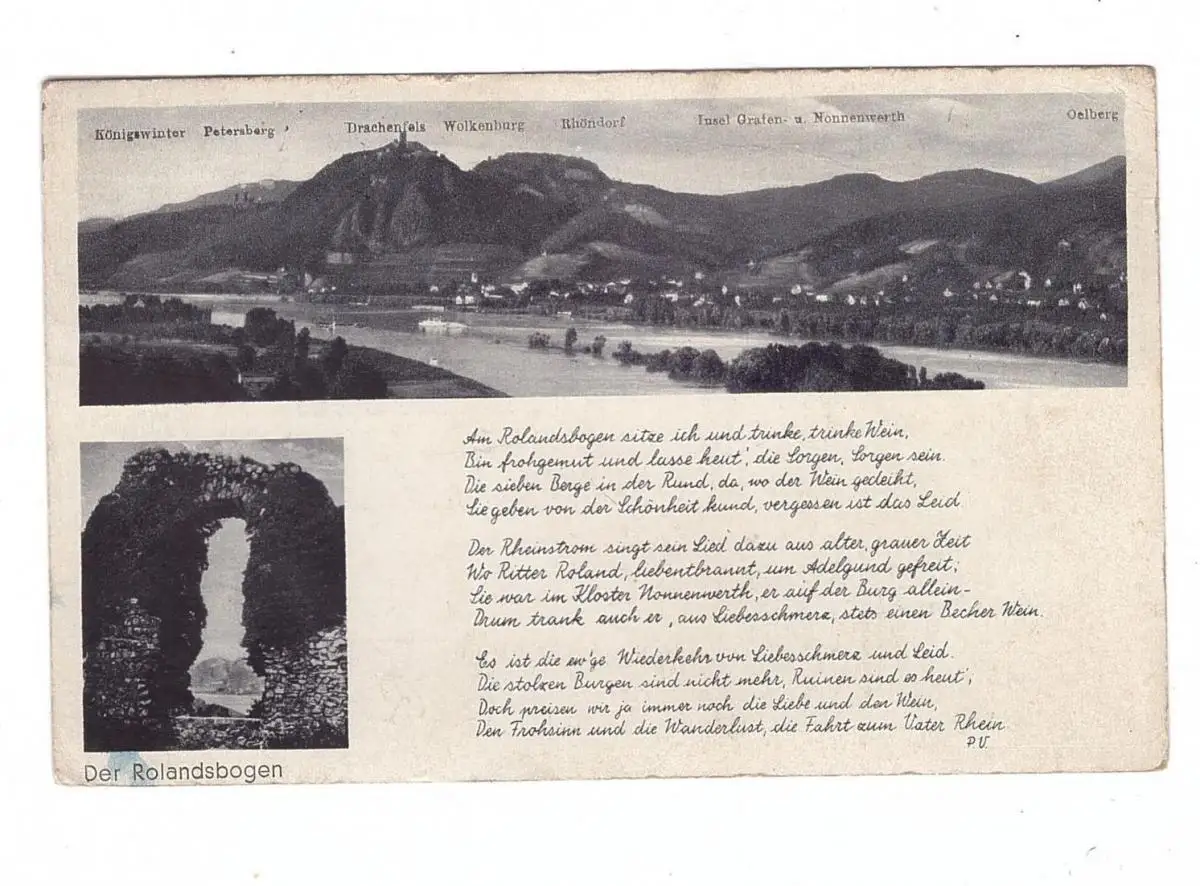 Königswinter Petersberg Drachenfels Wolkenburg Rhöndorf Insel Grafen- u. Nonnenwerth Oelberg
Am Rolandsbogen sitze ich und trinke, trinke Wein,
Bin frohgemut und lasse heut', die Sorgen, Sorgen sein.
Die sieben Berge in der Rund, da, wo der Wein gedeiht,
Sie geben von der Schönheit kund, vergessen ist das Leid
Der Rheinstrom singt sein Lied dazu aus alter, grauer Zeit
Wo Ritter Roland, liebentbrannt, um Adelgund gefreit;
Sie war im Kloster Nonnenwerth, er auf der Burg allein-
Drum trank auch er, aus Liebesschmerz, stets einen Becher Wein.
Es ist die ew'ge Wiederkehr von Liebesschmerz und Leid.
Die stolzen Burgen sind nicht mehr, Ruinen sind es heut',
Doch preisen wir ja immer noch die Liebe und den Wein,
Den Frohsinn und die Wanderlust, die Fahrt zum Vater Rhein
P.V
Der Rolandsbogen